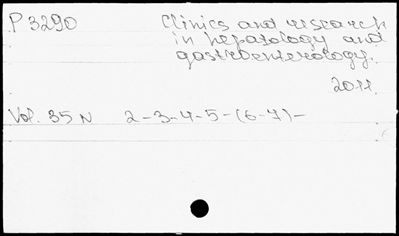 P 3290 Clinics and research
in hepatology and
gastroenterology.
2011.
Vol. 35 N 2-3-4-5-(6-7)-